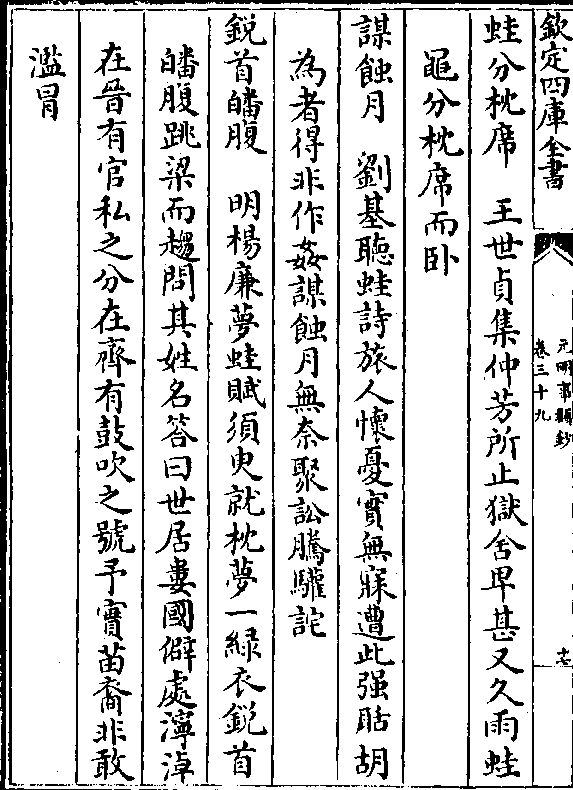 欽定四庫全書
元明事類鈔
卷三十九
十七
蛙分枕席　王世貞集仲芳所止獄舍卑甚又久雨蛙
黽分枕席而卧
謀蝕月　劉基聴蛙詩旅人懷憂實無寐遭此强聒胡
為者得非作姦謀蝕月無奈聚訟騰驩詑
鋭首皤腹　明楊廉夢蛙賦須臾就枕夢一緑衣鋭首
皤腹跳梁而趨問其姓名答曰世居婁國僻處濘淖
在晉有官私之分在齊有鼓吹之號予實苗裔非敢
濫冒